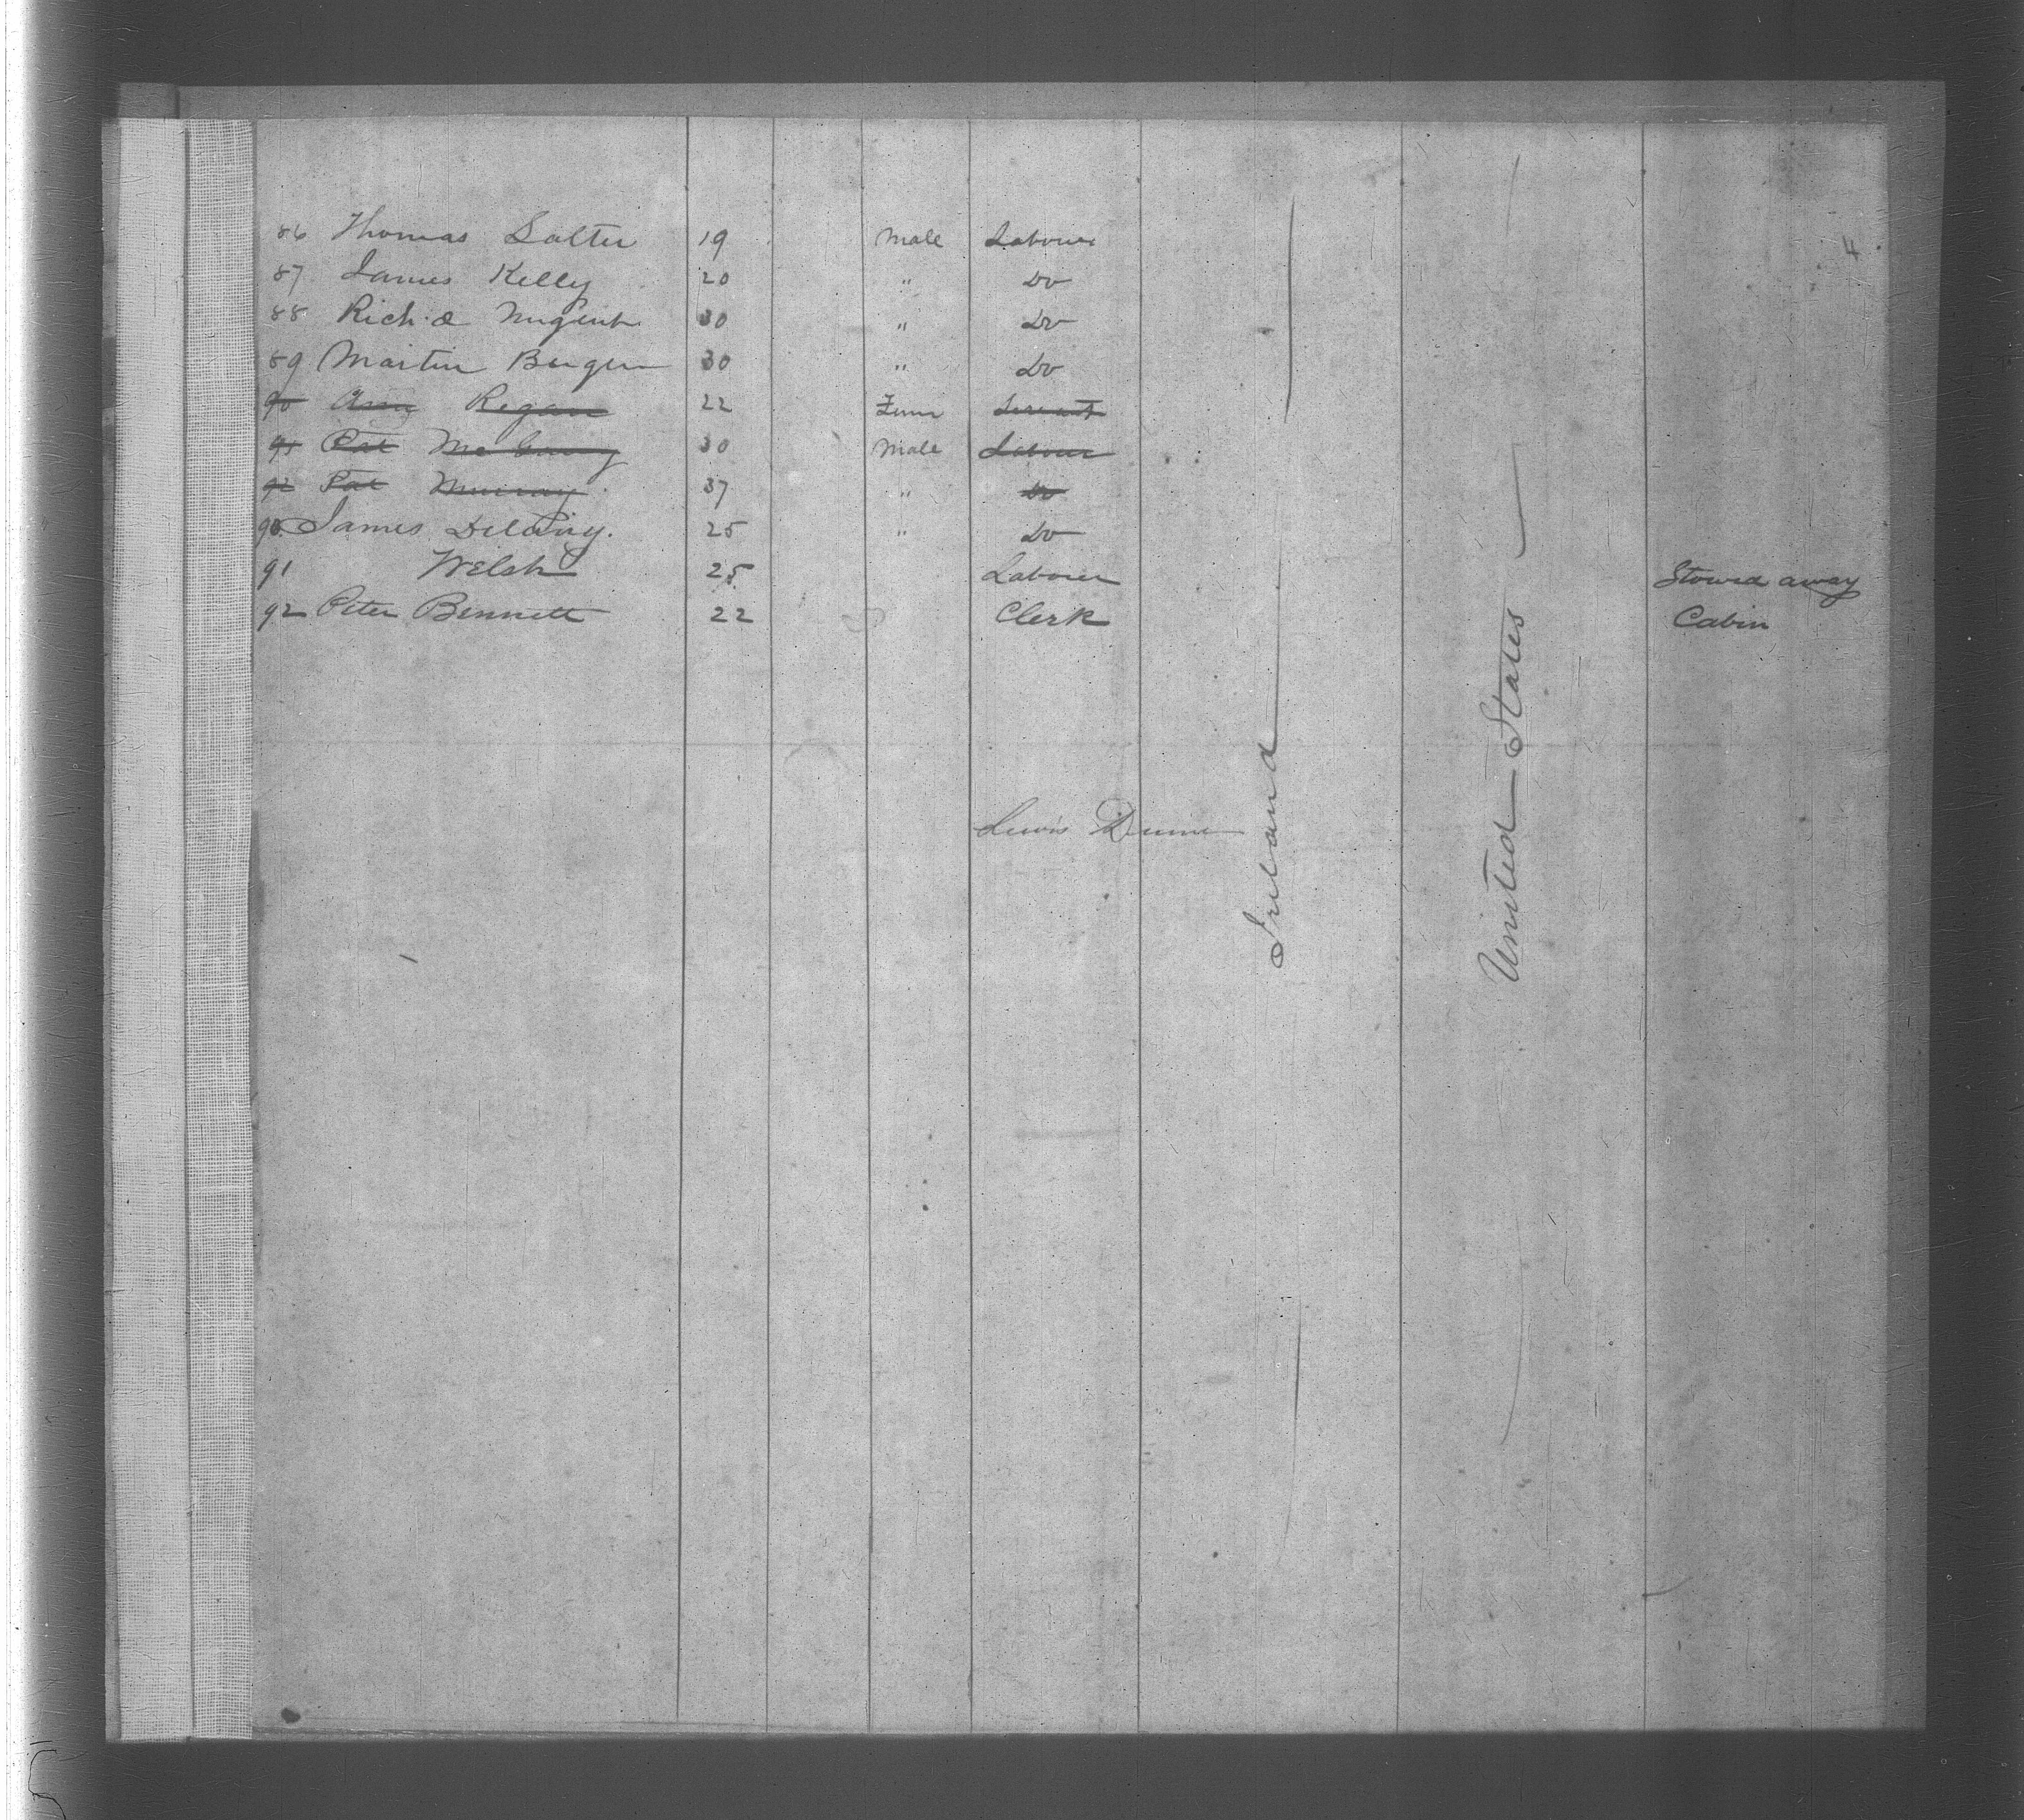 4
86 Thomas Salter 19 Male Labourer
87 James Kelly 20 " Do
88 Rich.d Nugent 30 " Do
89 Martin Bergin 30 " Do
90 Regan 22 Fem Servant
91 Pat 30 Male Labour
92 Pat Murray 37 " Do
90. James Delany. 25 " Do
91 Welsh 25 Labourer Stowed away
92 Peter Bennett 22 Clerk Cabin
Lewis Dunne
Ireland
United States